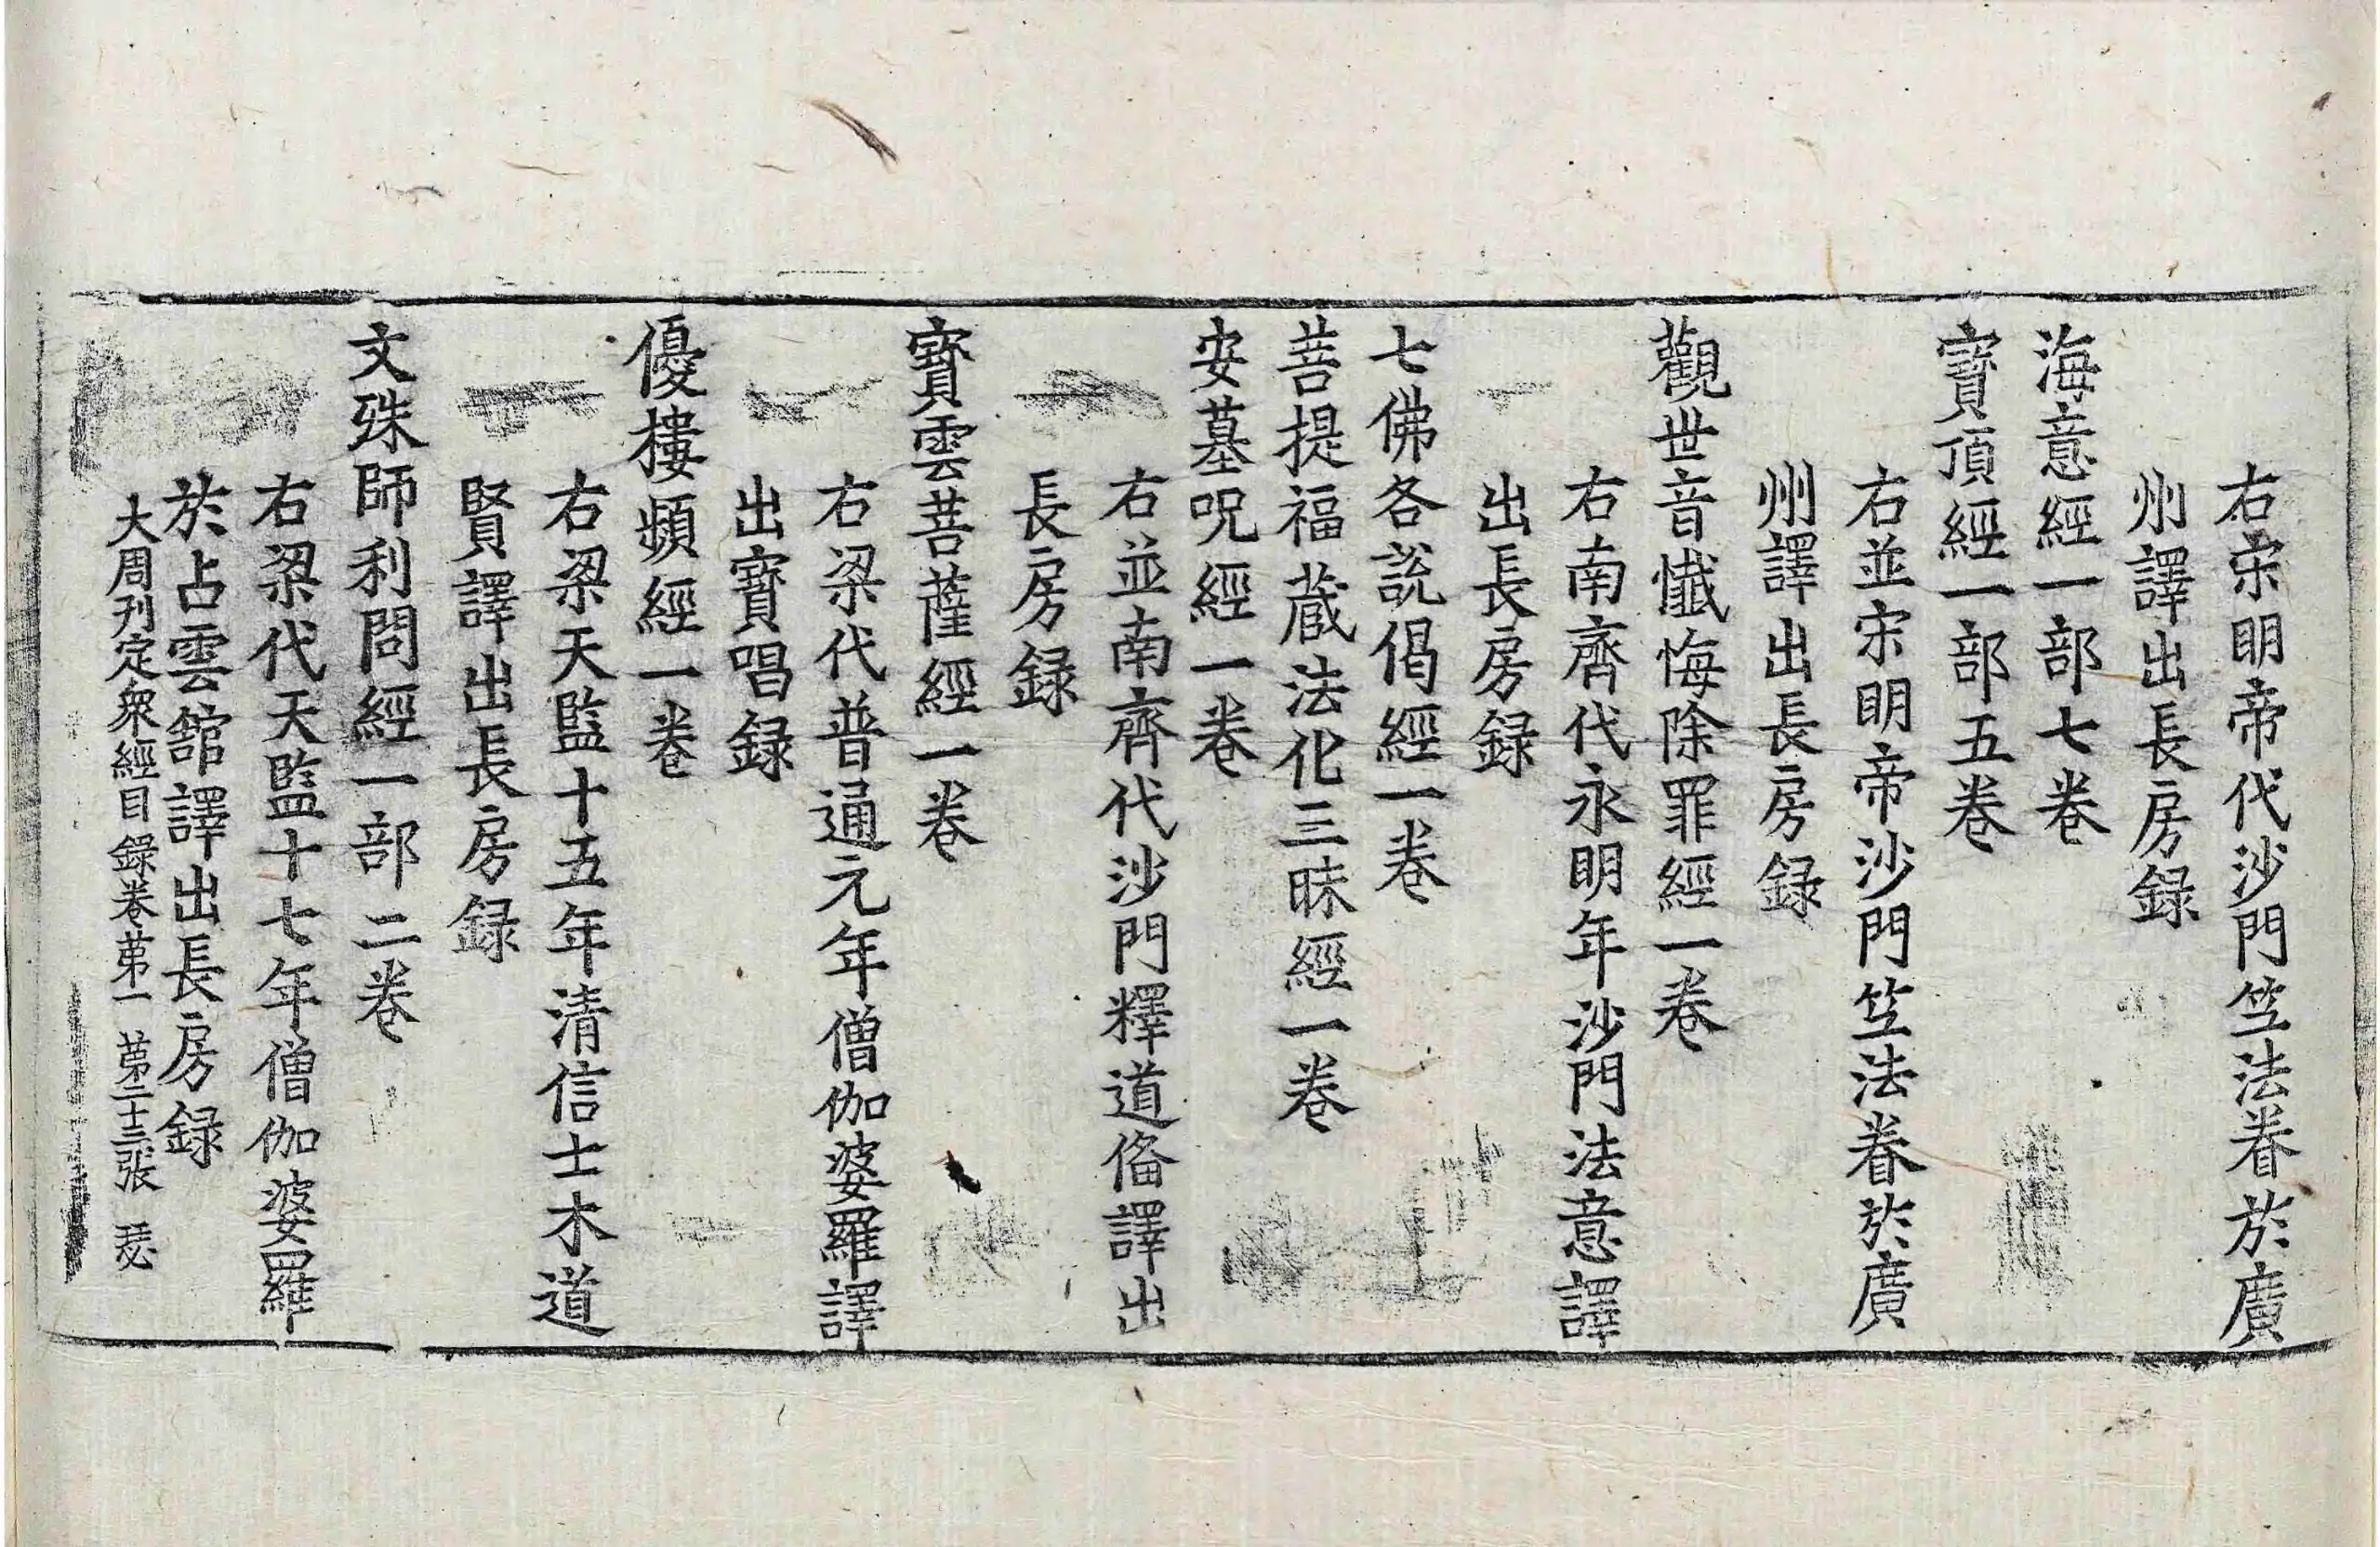 右宋明帝代沙門竺法眷於廣
州譯出長房録
海意經一部七卷
寶頂經一部五卷
右並宋明帝沙門竺法眷於廣
州譯出長房録
觀世音懺悔除罪經一卷
右南齊代永明年沙門法意譯
出長房録
七佛各說偈經一卷
菩提福藏法化三昧經一卷
安墓呪經一卷
右並南齊代沙門釋道俻譯出
長房録
寶雲菩薩經一卷
右梁代普通元年僧伽婆羅譯
出寶唱録
優樓頻經一卷
右梁天監十五年清信士木道
賢譯出長房録
文殊師利問經一部二卷
右梁代天監十七年僧伽婆羅
於占雲舘譯出長房録
大周刊定衆經目録卷苐一 苐二十三張 瑟